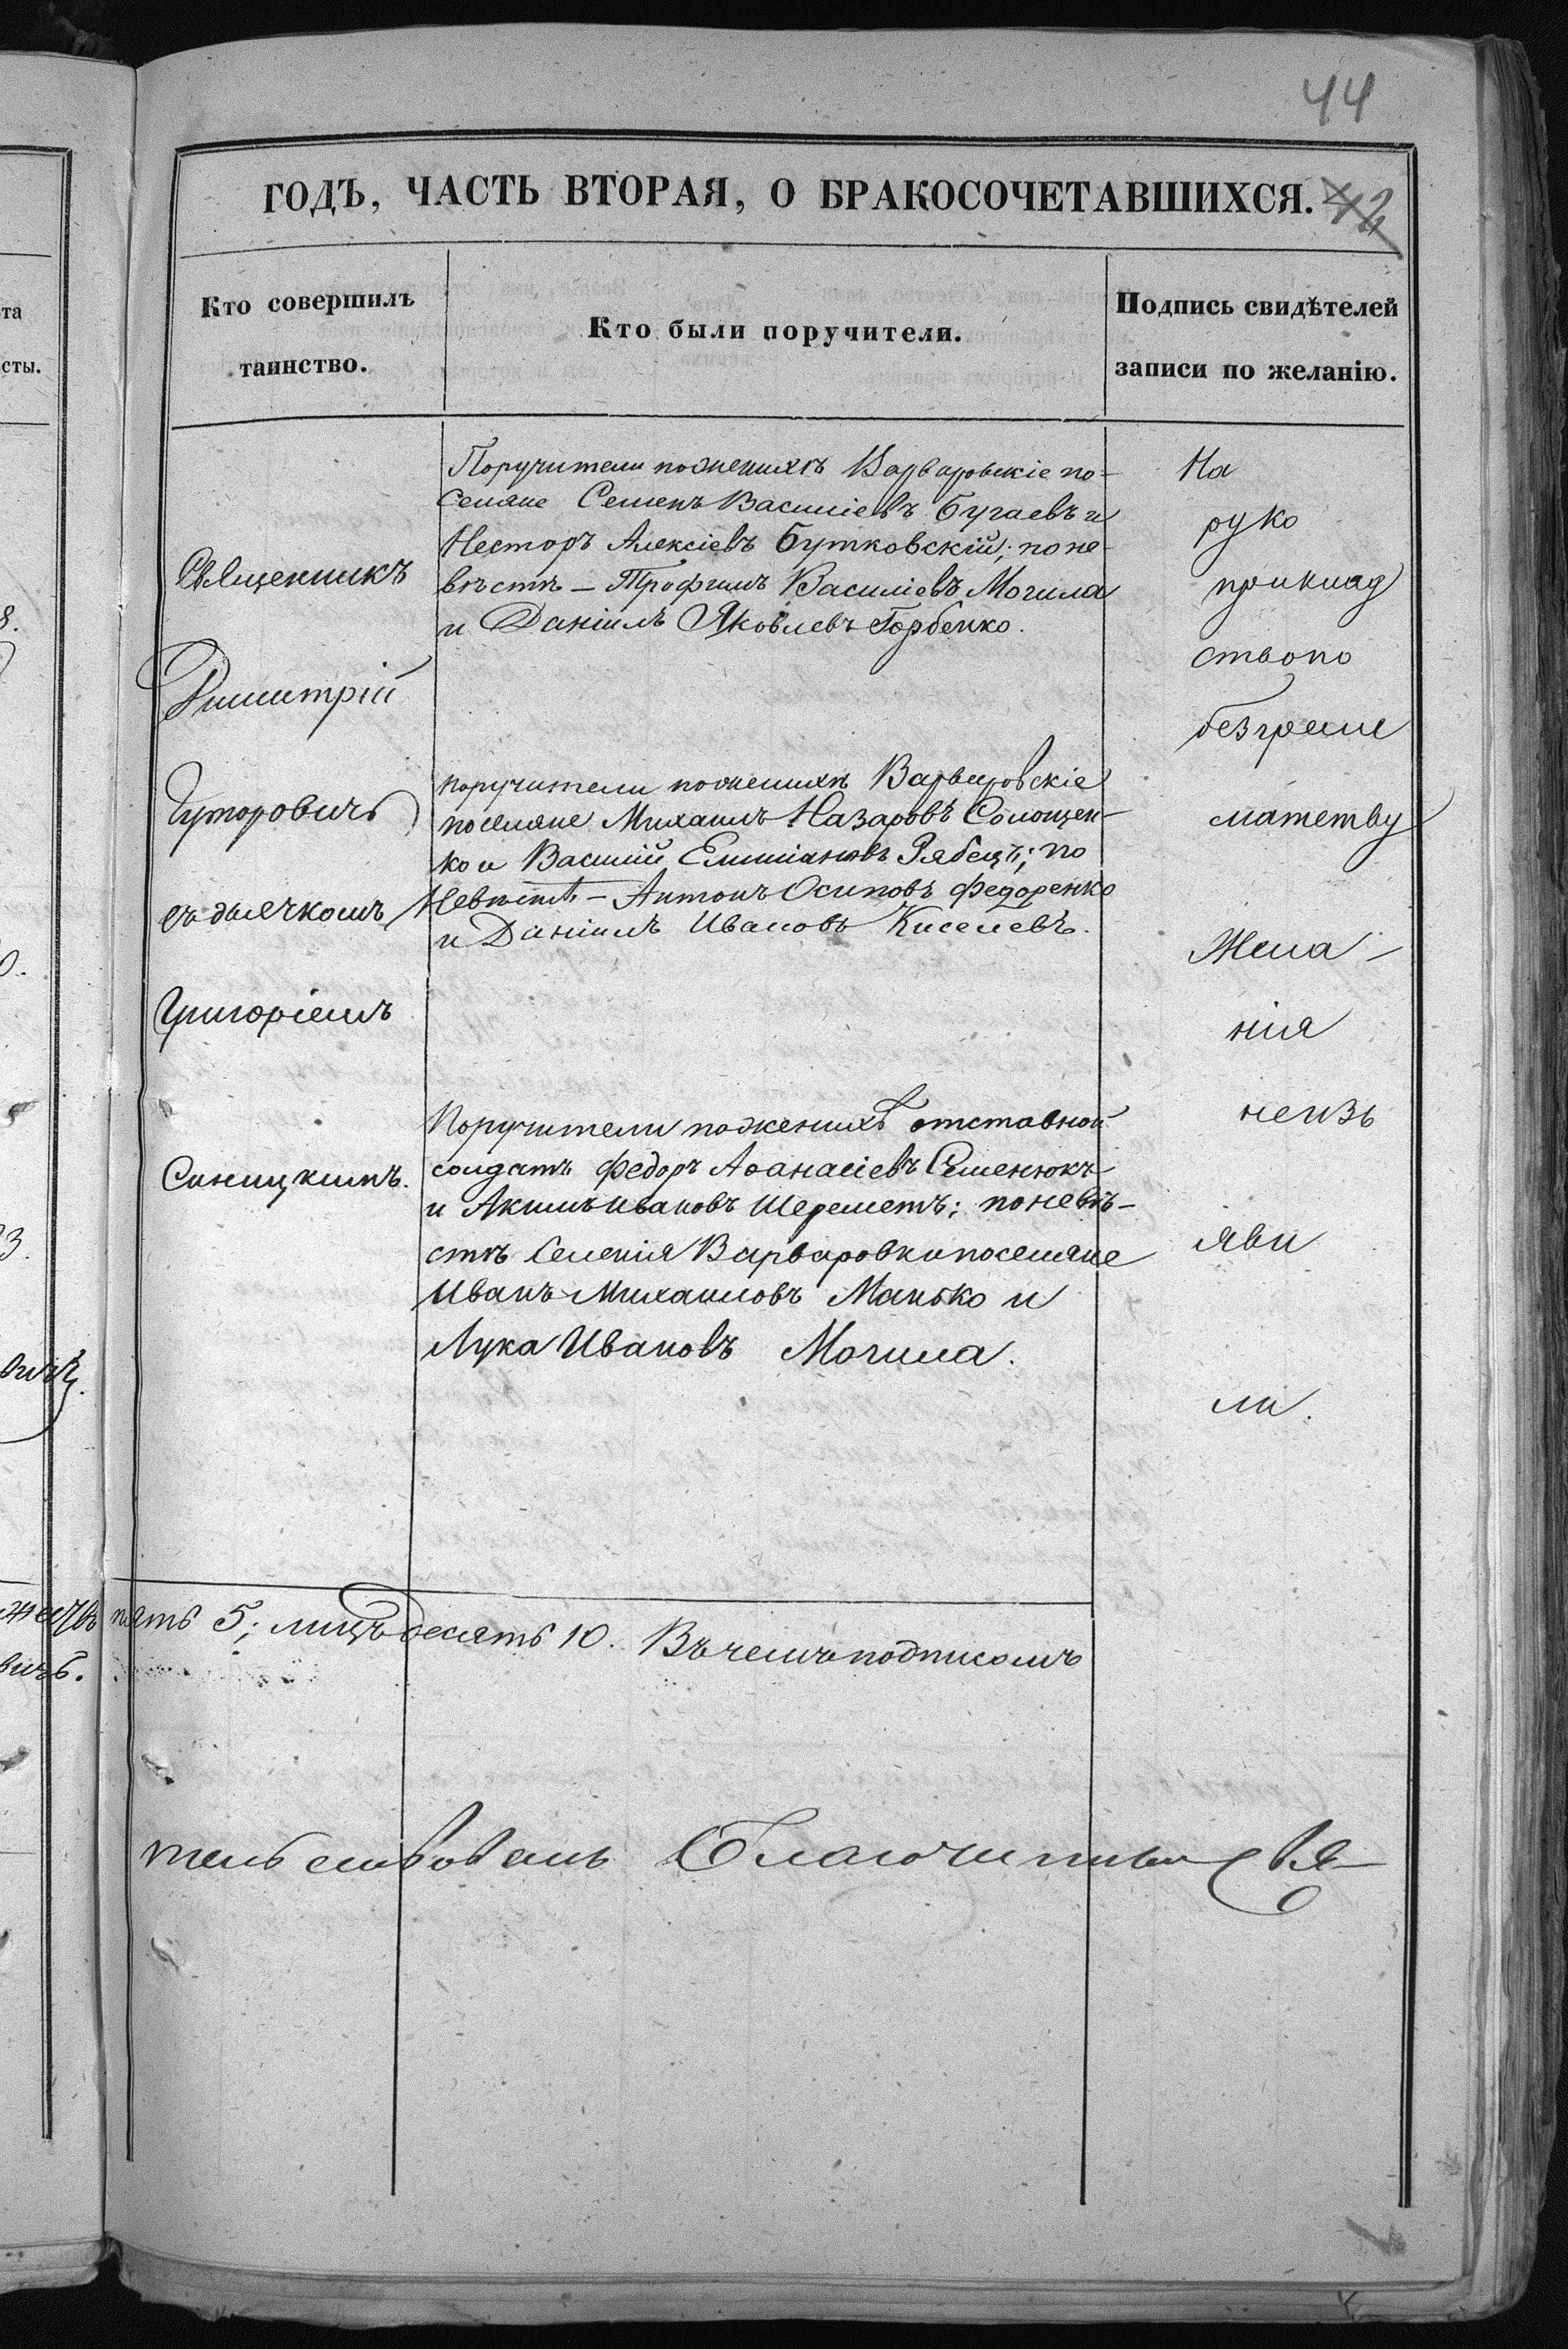 44
ГОДЪ, ЧАСТЬ ВТОРАЯ, О БРАКОСОЧЕТАВШИХСЯ. 42
Кто совершилъ
таинство.
Кто были поручители.
Подпись свидѣтелей
записи по желанію.
та
сты.
Священникъ
Димитрій
Гуторовичъ
съ дьячкомъ
Григоріемъ
Синицкимъ.
Поручители по женихѣ Варваровскіе по-
селяне Семенъ Василіевъ Бугаевъ и
Несторъ Алексіевъ Бутковскій; по не-
вѣстѣ – Трофимъ Василіевъ Могила
и Даніилъ Яковлевъ Горбенко.
поручители по женихѣ Варваровскіе
поселяне Михаилъ Назаровъ Солощен-
ко и Василій Емиліановъ Рябецъ; по
невѣстѣ – Антонъ Осиповъ Федоренко
и Даніилъ Ивановъ Киселевъ.
Поручители по женихѣ отставной
солдатъ Федоръ Аѳанасіевъ Семенюкъ
и Акимъ Ивановъ Шереметъ; по невѣ-
стѣ селенія Варваровки поселяне
Иванъ Михаиловъ Манько и
Лука Ивановъ Могила.
На
руко
приклад
ство по
безграм
матству
Жела-
нія
неизъ
яви
ли.
8.
0.
3.
вичъ.
пять 5; лицъ десять 10. Въ чемъ подписомъ
вичъ.
тельствовалъ Благочинный Свя-